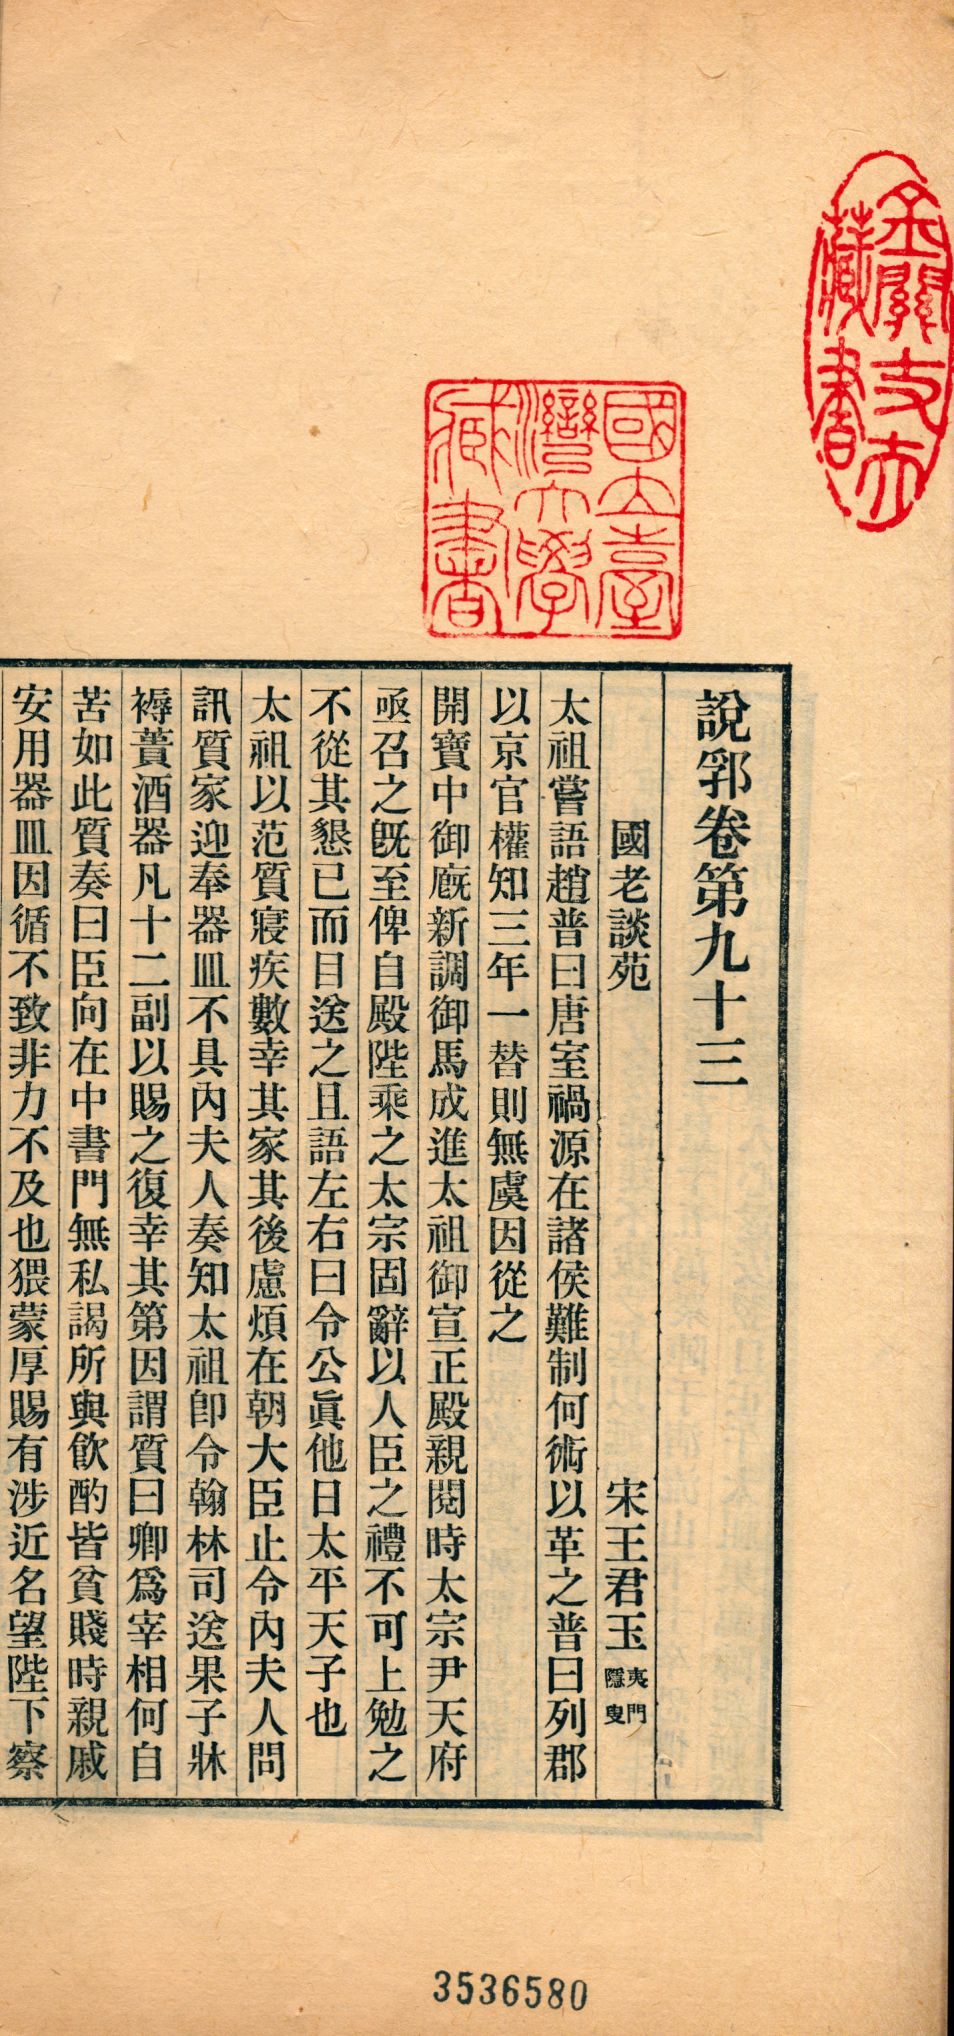 說郛卷第九十三
國老談苑 宋王君玉夷門隱叟
太祖嘗語趙普曰唐室禍源在諸侯難制何術以革之普曰列郡
以京官權知三年一替則無虞因從之
開寶中御廐新調御馬成進太祖御宣正殿親閱時太宗尹天府
亟召之旣至俾自殿陛乘之太宗固辭以人臣之禮不可上勉之
不從其懇已而目送之且語左右曰令公眞他日太平天子也
太祖以范質寢疾數幸其家其後慮煩在朝大臣止令內夫人問
訊質家迎奉器皿不具內夫人奏知太祖卽令翰林司送果子牀
褥蕢酒器凡十二副以賜之復幸其第因謂質曰卿爲宰相何自
苦如此質奏曰臣向在中書門無私謁所與飮酌皆貧賤時親戚
安用器皿因循不致非力不及也猥蒙厚賜有涉近名望陛下察
國立臺灣大學藏書
藏書
3536580